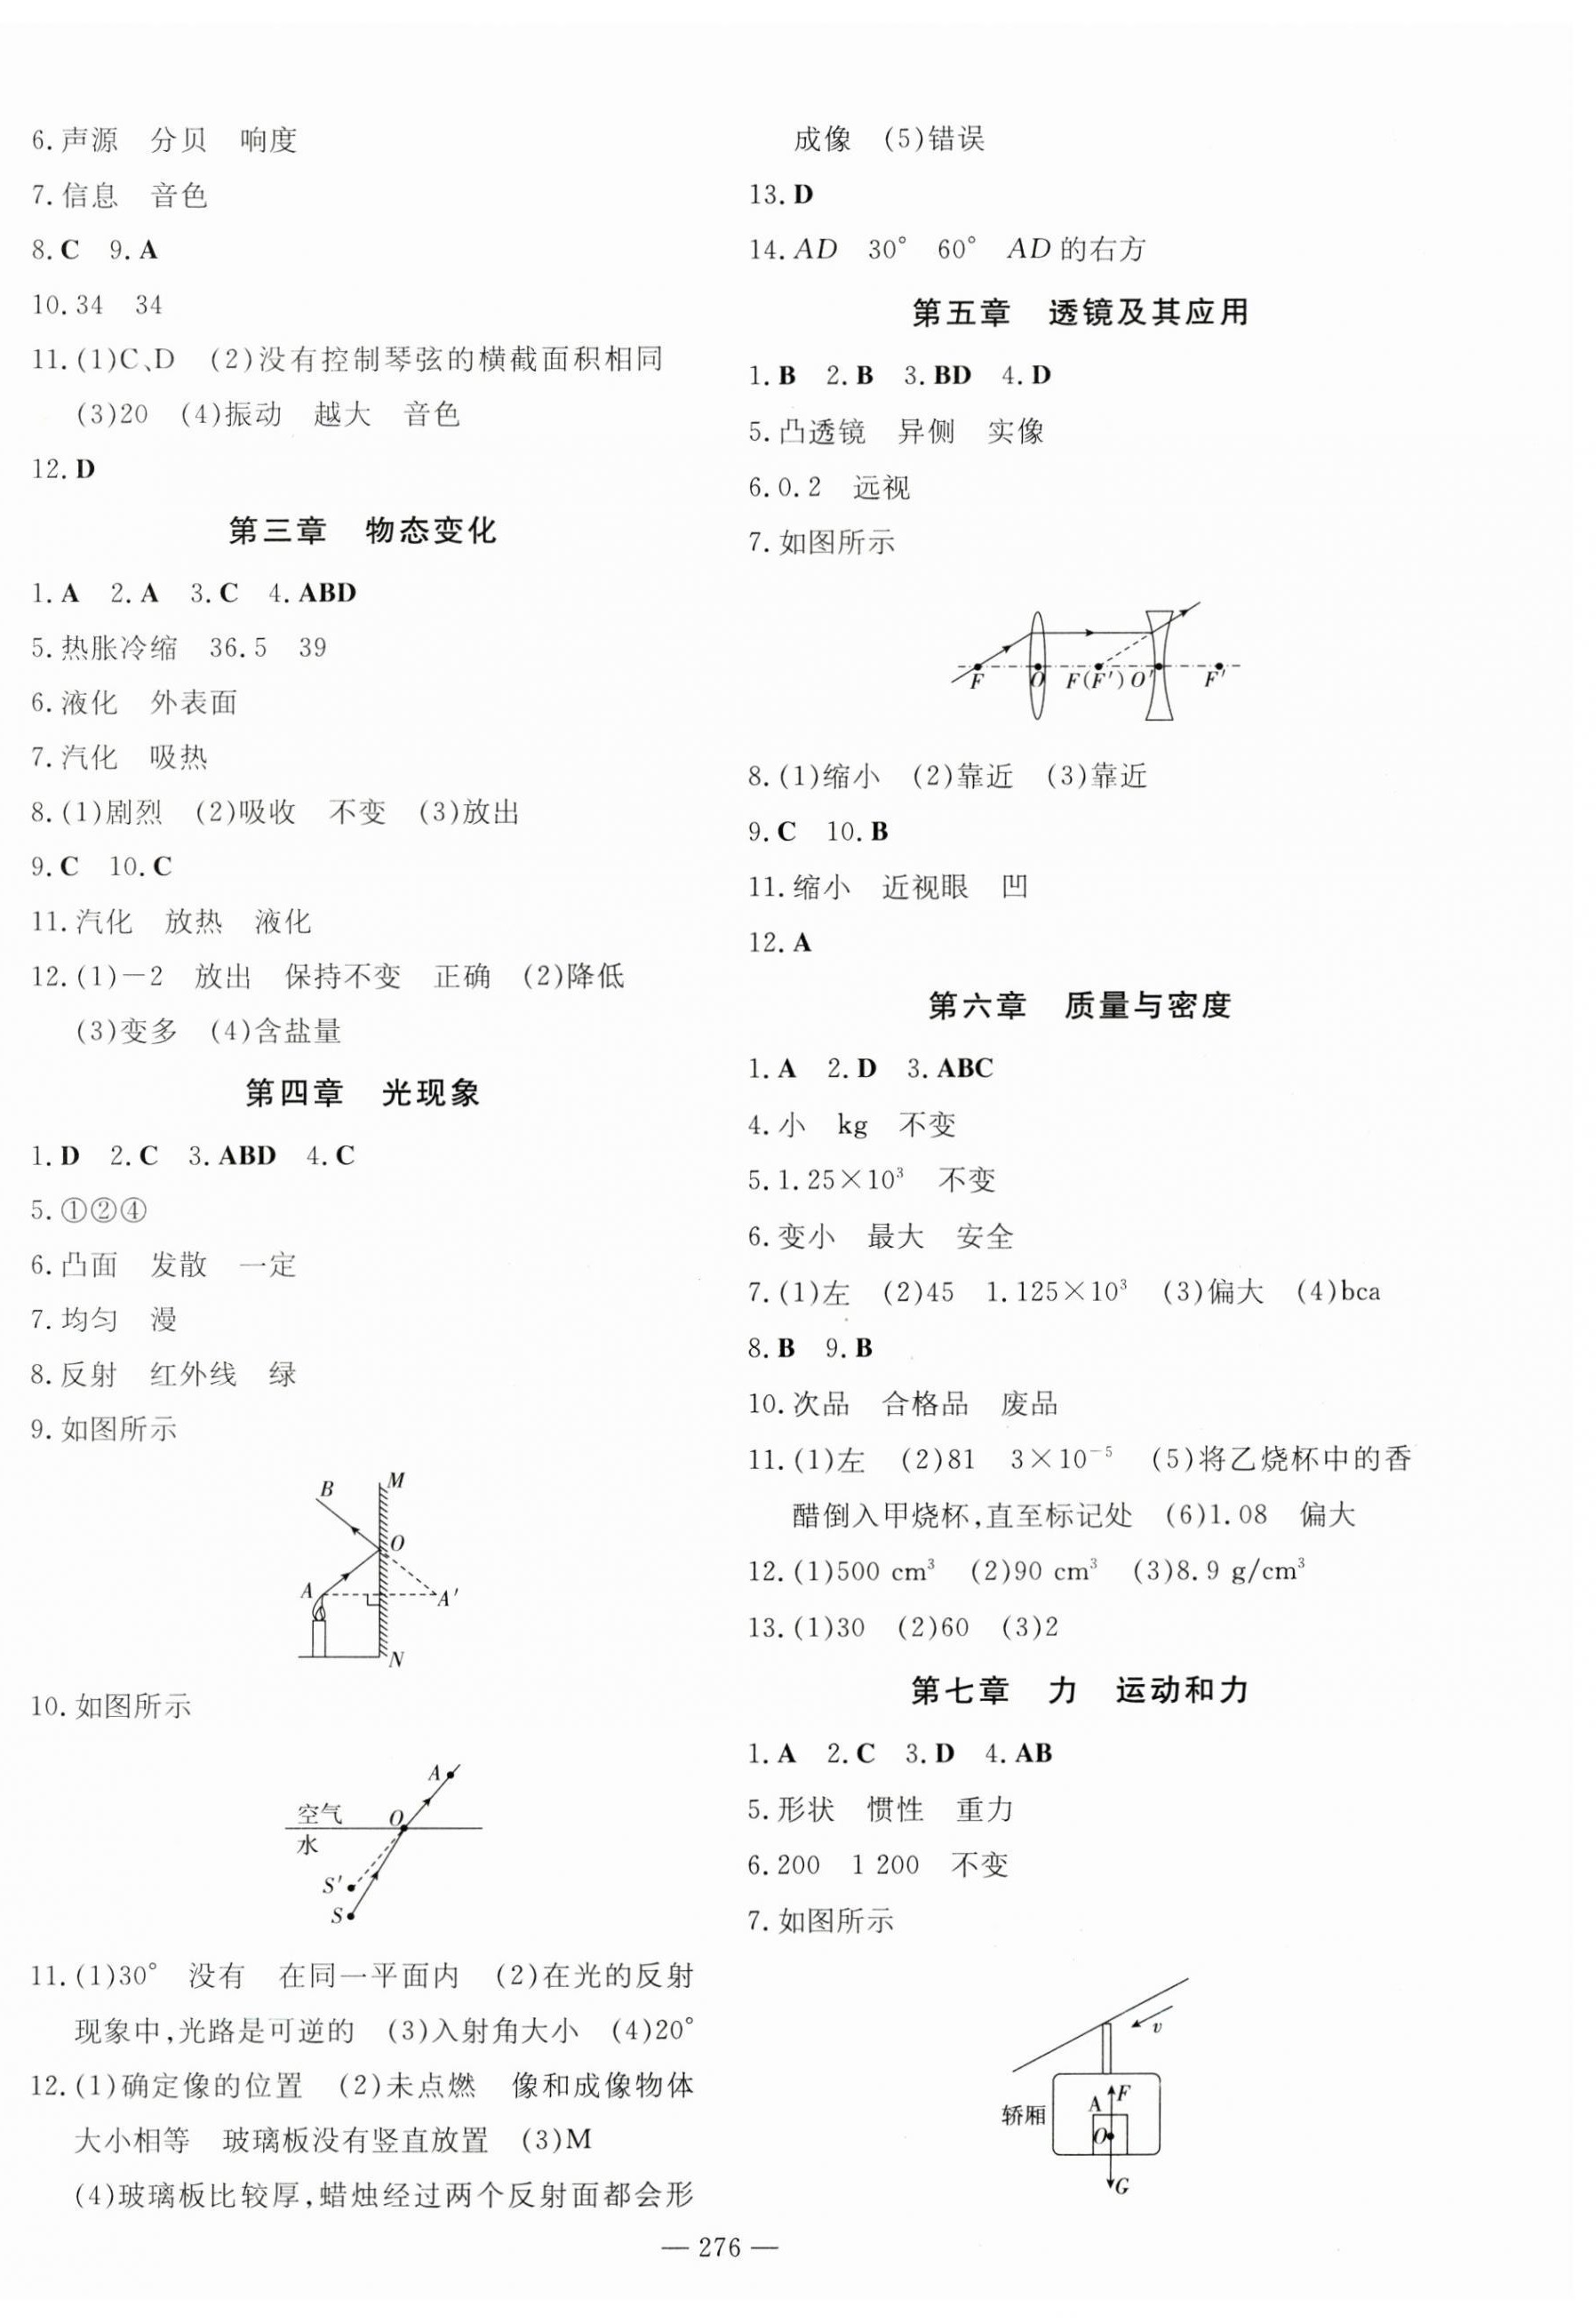 6.声源　分贝　响度
7.信息　音色
8.C　9.A
10.34　34
11.(1)C、D　(2)没有控制琴弦的横截面积相同
(3)20　(4)振动　越大　音色
12.D
第三章　物态变化
1.A　2.A　3.C　4.ABD
5.热胀冷缩　36.5　39
6.液化　外表面
7.汽化　吸热
8.(1)剧烈　(2)吸收　不变　(3)放出
9.C　10.C
11.汽化　放热　液化
12.(1)－2　放出　保持不变　正确　(2)降低
(3)变多　(4)含盐量
第四章　光现象
1.D　2.C　3.ABD　4.C
5.①②④
6.凸面　发散　一定
7.均匀　漫
8.反射　红外线　绿
9.如图所示
B
M
O
A
A'
N
10.如图所示
A
空气
O
水
S'
S
11.(1)30°　没有　在同一平面内　(2)在光的反射
现象中,光路是可逆的　(3)入射角大小　(4)20°
12.(1)确定像的位置　(2)未点燃　像和成像物体
大小相等　玻璃板没有竖直放置　(3)M
(4)玻璃板比较厚,蜡烛经过两个反射面都会形
成像　(5)错误
13.D
14.AD　30°　60°　AD的右方
第五章　透镜及其应用
1.B　2.B　3.BD　4.D
5.凸透镜　异侧　实像
6.0.2　远视
7.如图所示
F　O　F(F')　O'　F'
8.(1)缩小　(2)靠近　(3)靠近
9.C　10.B
11.缩小　近视眼　凹
12.A
第六章　质量与密度
1.A　2.D　3.ABC
4.小　kg　不变
5.1.25×10³　不变
6.变小　最大　安全
7.(1)左　(2)45　1.125×10³　(3)偏大　(4)bca
8.B　9.B
10.次品　合格品　废品
11.(1)左　(2)81　3×10⁻⁵　(5)将乙烧杯中的香
醋倒入甲烧杯,直至标记处　(6)1.08　偏大
12.(1)500 cm³　(2)90 cm³　(3)8.9 g/cm³
13.(1)30　(2)60　(3)2
第七章　力　运动和力
1.A　2.C　3.D　4.AB
5.形状　惯性　重力
6.200　1 200　不变
7.如图所示
v
F
A
轿厢
O
G
— 276 —